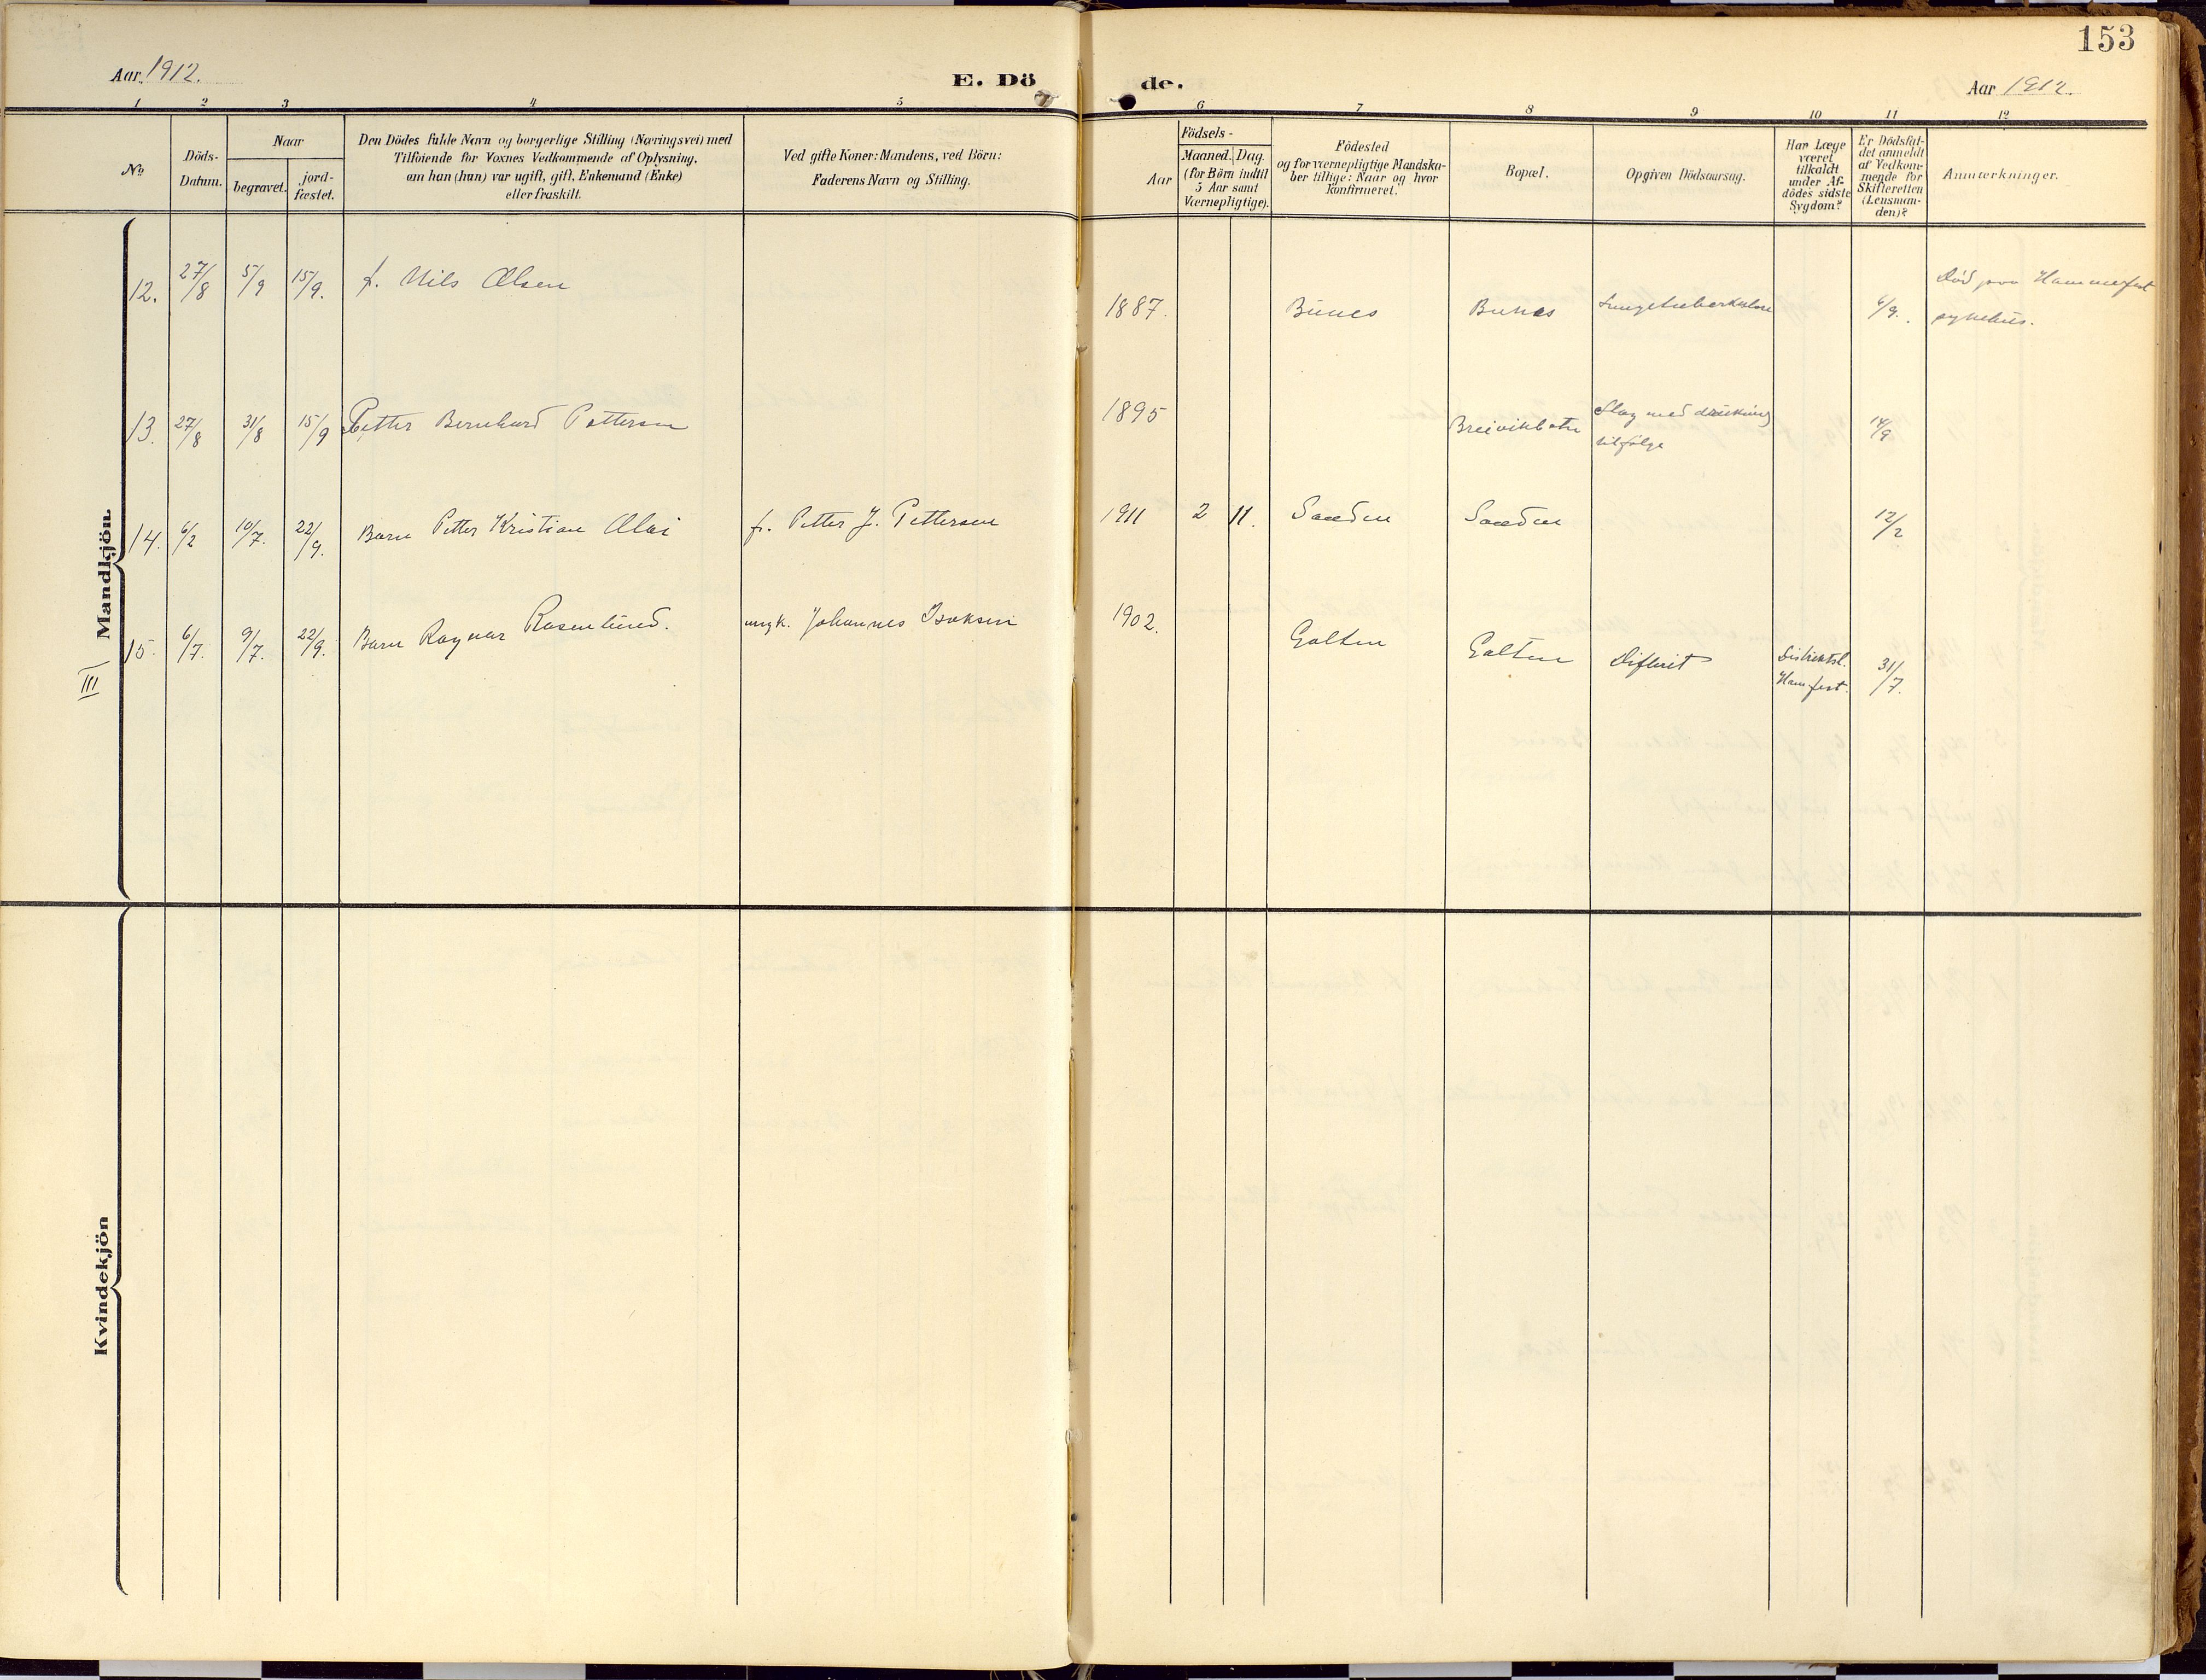 153
Aar 1912.
E. Döde.
Aar 1912.
1 2 3 4 5 6 7 8 9 10 11 12
No
Döds-
Datum.
Naar
begravet.
jord-
fæstet.
Den Dödes fulde Navn og borgerlige Stilling (Næringsvei) med
Tilföiende for Voxnes Vedkommende af Oplysning,
om han (hun) var ugift, gift, Enkemand (Enke)
eller fraskilt.
Ved gifte Koner: Mandens, ved Börn:
Faderens Navn og Stilling.
Födsels-
Aar
Maaned. Dag.
(for Börn indtil
5 Aar samt
Værnepligtige).
Födested
og for værnepligtige Mandska-
ber tillige: Naar og hvor
konfirmeret.
Bopæl.
Opgiven Dödsaarsag.
Har Læge
været
tilkaldt
under Af-
dödes sidste
Sygdom?
Er Dödsfal-
det anmeldt
af Vedkom-
mende for
Skifteretten
(Lensman-
den)?
Anmærkninger.
Mandkjön.
III
12. 27/8 5/9 15/9. f. Nils Olsen 1887. Bunes Bunes Lungetuberkulose 6/9. Död paa Hammerfest
sykehus.
13. 27/8 31/8 15/9 Petter Bernhard Pettersen 1895 Breivikbotn Slag med drukning
tilfølge 14/9
14. 6/2 10/7. 22/9. Barn Petter Kristian Olai f. Petter J. Pettersen 1911 2 11. Sanden Sanden 12/2
15. 6/7. 9/7. 22/9. Barn Ragnar Rosenlund. ungk. Johannes Isaksen 1902. Galten Galten Difterit Distriktsl.
Ham.fest. 31/7.
Kvindekjön